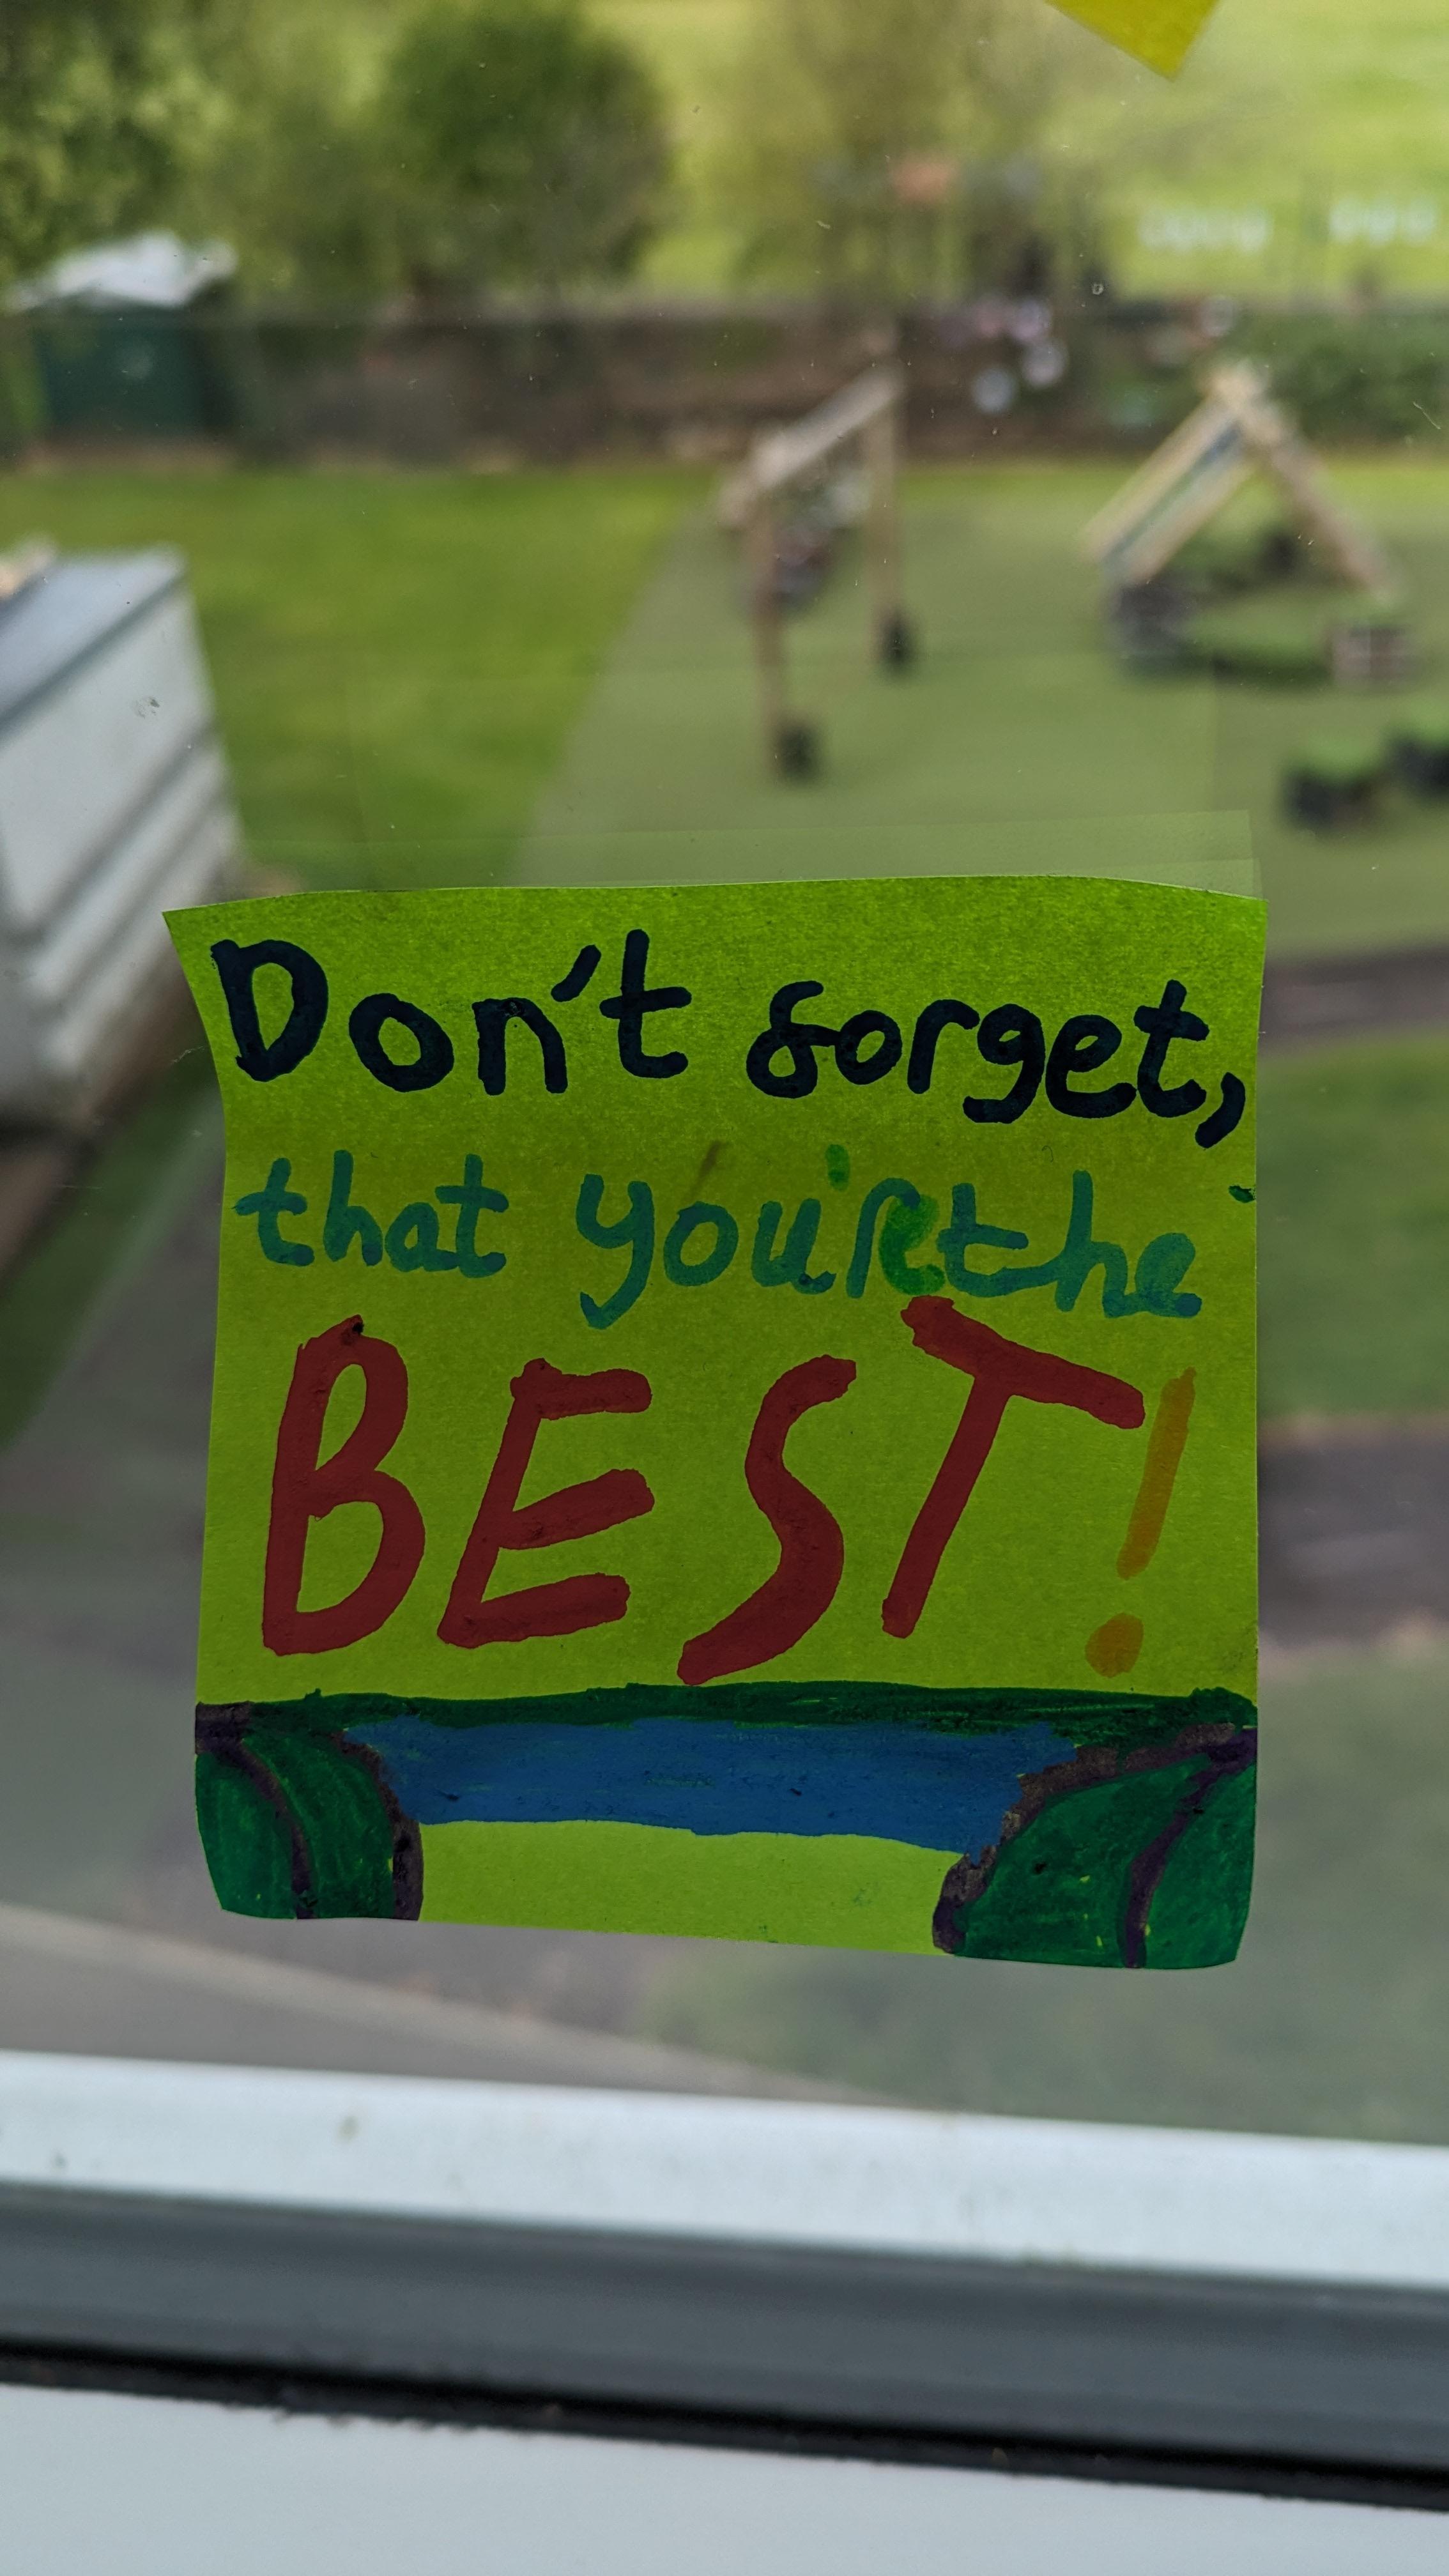 Don't forget,
that you're the
BEST!